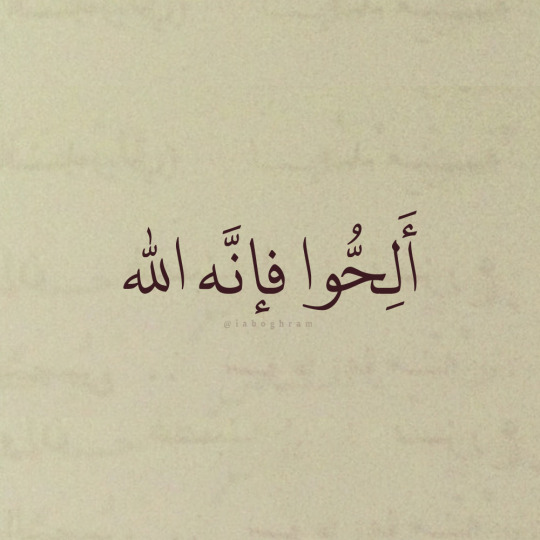 أَلِحُّوا فإنَّه الله
@iahoghram